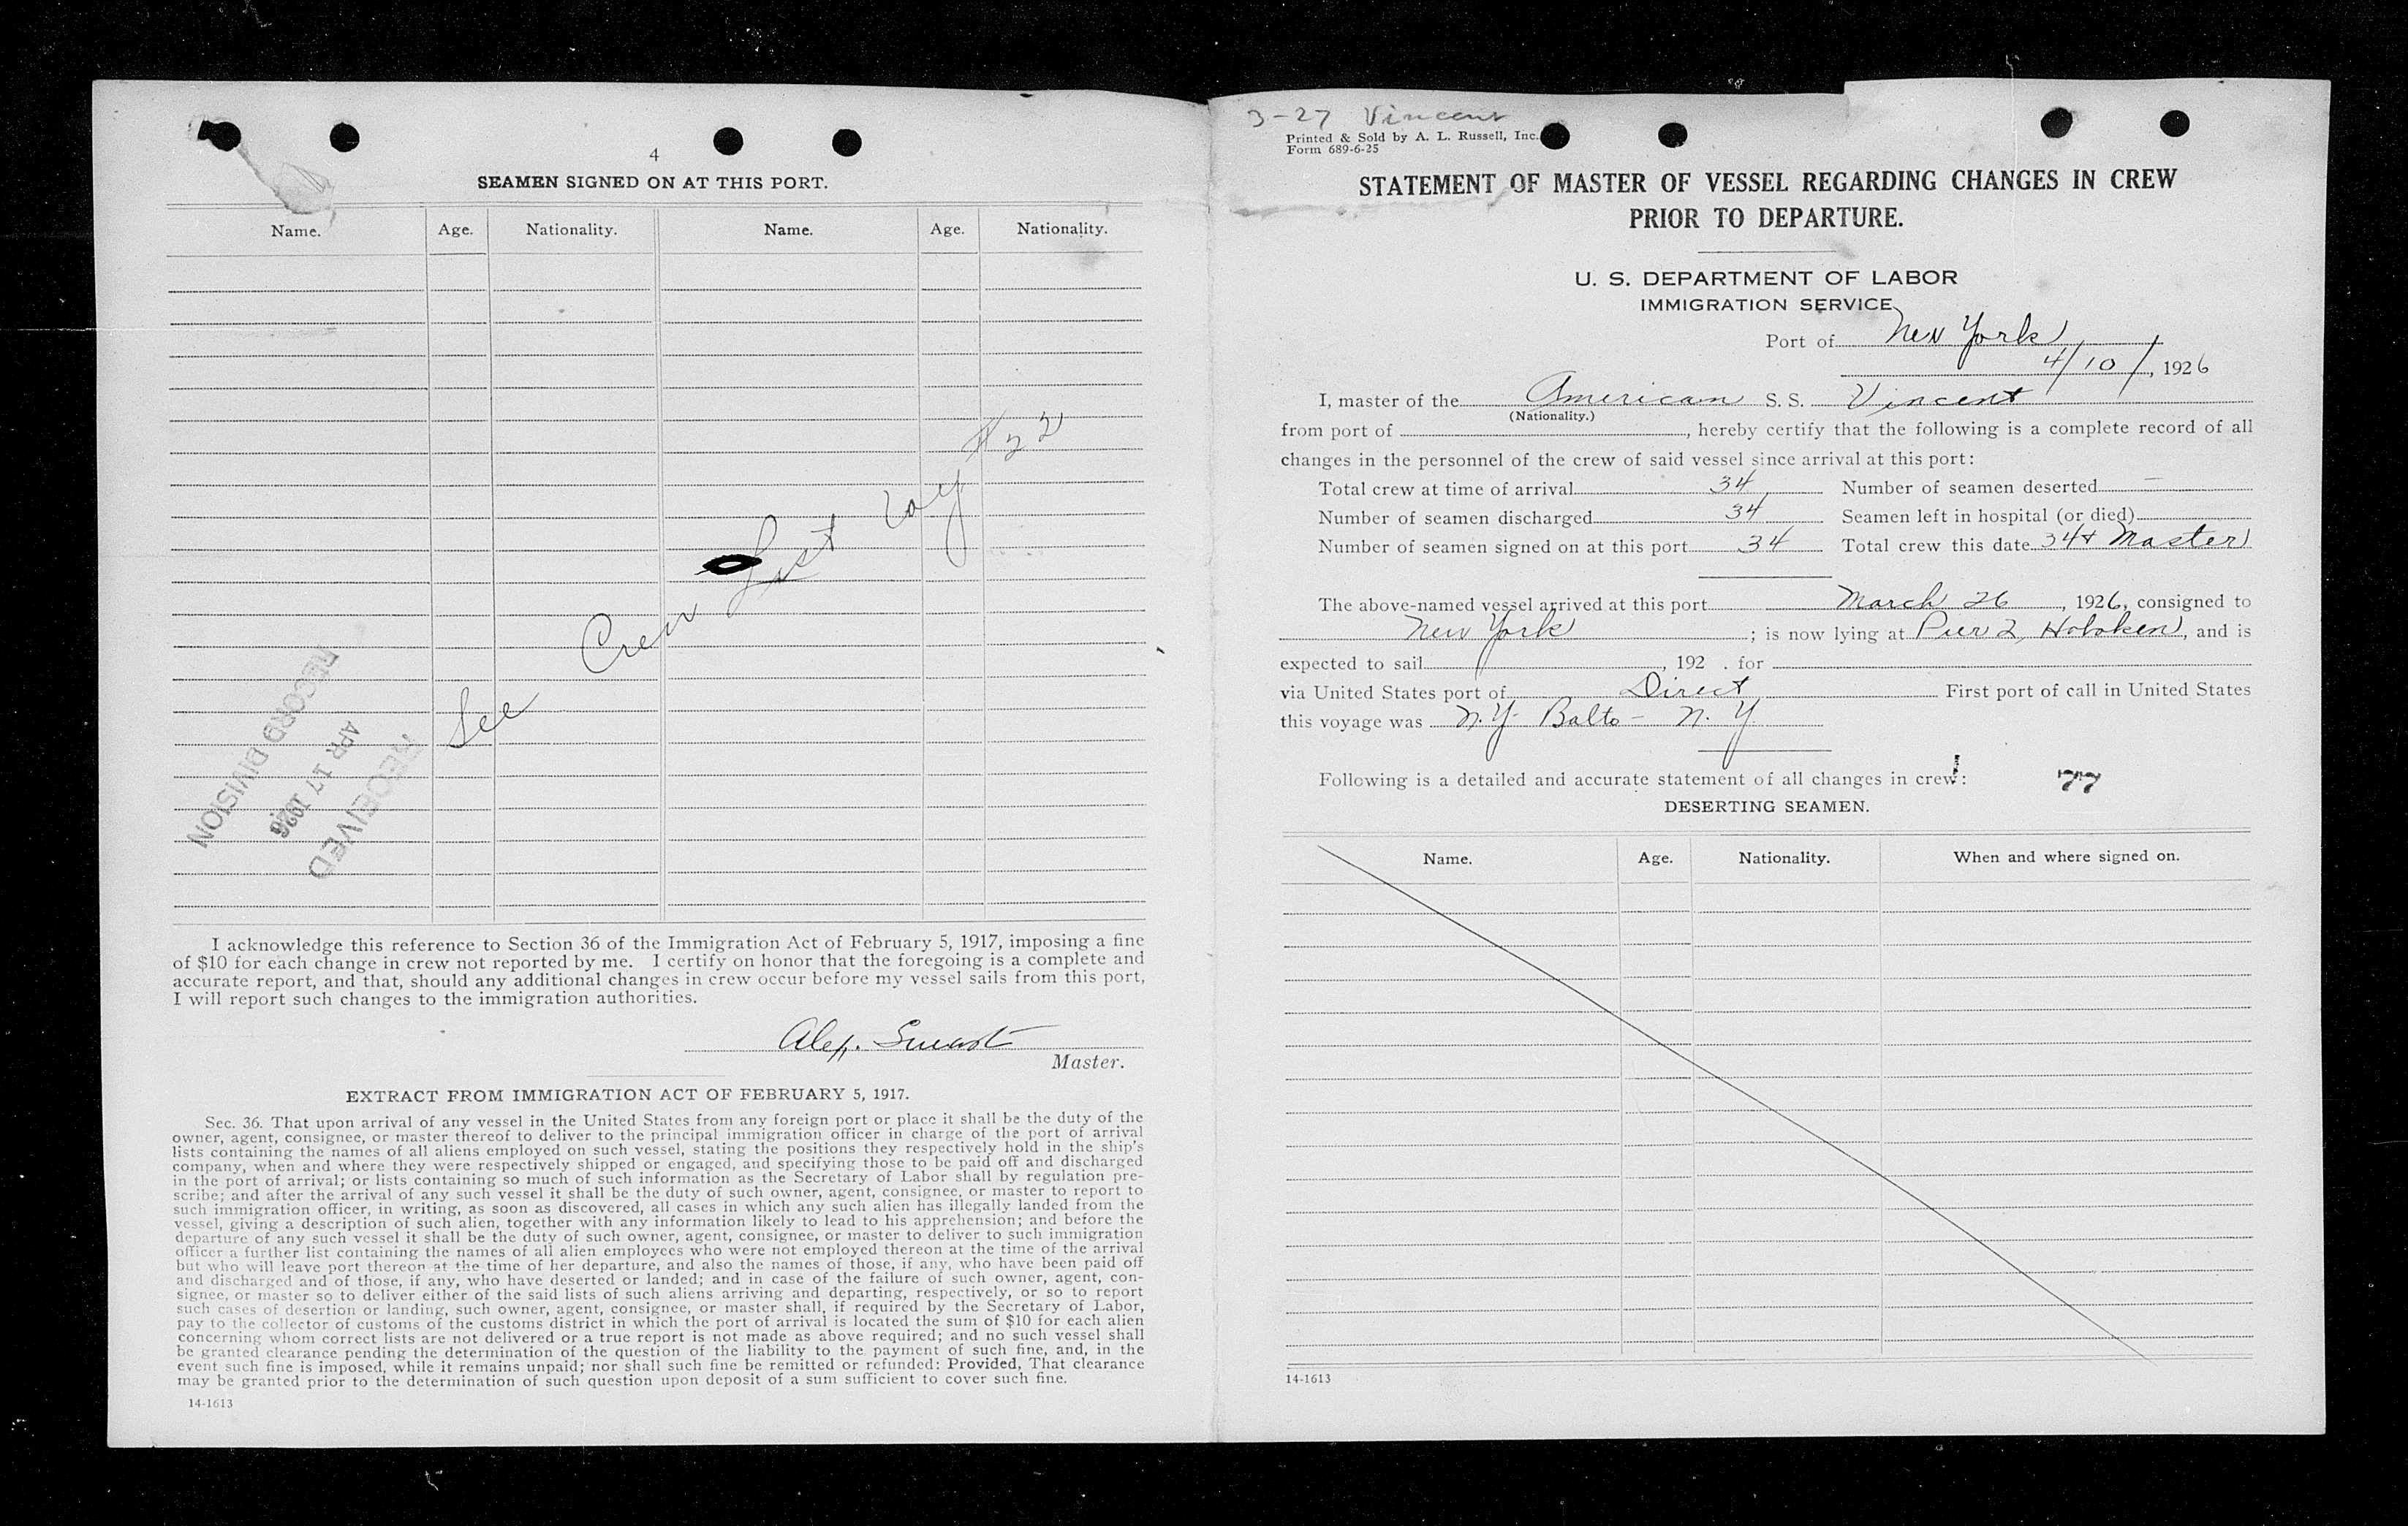 4
SEAMEN SIGNED ON AT THIS PORT.
Name. Age. Nationality. Name. Age. Nationality.
See Crew List Voy #22
RECEIVED
APR 17 1926
RECORD DIVISION
I acknowledge this reference to Section 36 of the Immigration Act of February 5, 1917, imposing a fine
of $10 for each change in crew not reported by me. I certify on honor that the foregoing is a complete and
accurate report, and that, should any additional changes in crew occur before my vessel sails from this port,
I will report such changes to the immigration authorities.
Alex.
Master.
EXTRACT FROM IMMIGRATION ACT OF FEBRUARY 5, 1917.
Sec. 36. That upon arrival of any vessel in the United States from any foreign port or place it shall be the duty of the
owner, agent, consignee, or master thereof to deliver to the principal immigration officer in charge of the port of arrival
lists containing the names of all aliens employed on such vessel, stating the positions they respectively hold in the ship's
company, when and where they were respectively shipped or engaged, and specifying those to be paid off and discharged
in the port of arrival; or lists containing so much of such information as the Secretary of Labor shall by regulation pre-
scribe; and after the arrival of any such vessel it shall be the duty of such owner, agent, consignee, or master to report to
such immigration officer, in writing, as soon as discovered, all cases in which any such alien has illegally landed from the
vessel, giving a description of such alien, together with any information likely to lead to his apprehension; and before the
departure of any such vessel it shall be the duty of such owner, agent, consignee, or master to deliver to such immigration
officer a further list containing the names of all alien employees who were not employed thereon at the time of the arrival
but who will leave port thereon at the time of her departure, and also the names of those, if any, who have been paid off
and discharged and of those, if any, who have deserted or landed; and in case of the failure of such owner, agent, con-
signee, or master so to deliver either of the said lists of such aliens arriving and departing, respectively, or so to report
such cases of desertion or landing, such owner, agent, consignee, or master shall, if required by the Secretary of Labor,
pay to the collector of customs of the customs district in which the port of arrival is located the sum of $10 for each alien
concerning whom correct lists are not delivered or a true report is not made as above required; and no such vessel shall
be granted clearance pending the determination of the question of the liability to the payment of such fine, and, in the
event such fine is imposed, while it remains unpaid; nor shall such fine be remitted or refunded: Provided, That clearance
may be granted prior to the determination of such question upon deposit of a sum sufficient to cover such fine.
14-1613
3-27 Vincent
Printed & Sold by A. L. Russell, Inc.
Form 689-6-25
STATEMENT OF MASTER OF VESSEL REGARDING CHANGES IN CREW
PRIOR TO DEPARTURE.
U. S. DEPARTMENT OF LABOR
IMMIGRATION SERVICE
Port of New York
4/10/, 1926
I, master of the American S. S. Vincent
(Nationality.)
from port of , hereby certify that the following is a complete record of all
changes in the personnel of the crew of said vessel since arrival at this port:
Total crew at time of arrival 34 Number of seamen deserted —
Number of seamen discharged 34 Seamen left in hospital (or died)
Number of seamen signed on at this port 34 Total crew this date 34 + Master
The above-named vessel arrived at this port March 26, 1926, consigned to
New York ; is now lying at Pier 2, Hoboken, and is
expected to sail , 192 . for
via United States port of Direct First port of call in United States
this voyage was N.Y. Balto - N.Y.
Following is a detailed and accurate statement of all changes in crew: 77
DESERTING SEAMEN.
Name. Age. Nationality. When and where signed on.
14-1613